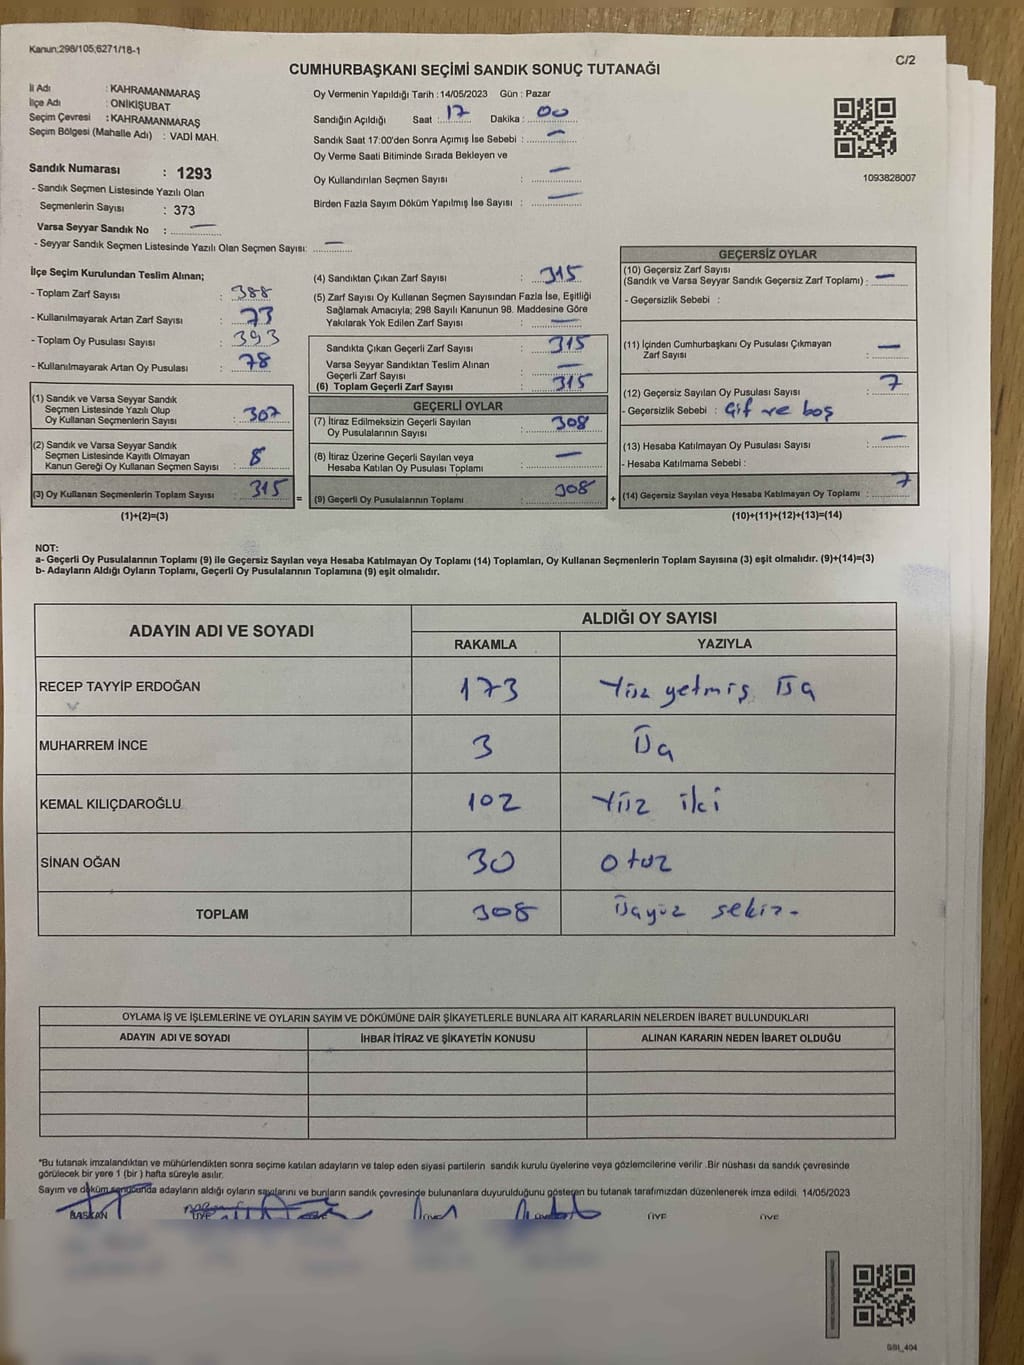 Kanun;298/105;6271/18-1
C/2
CUMHURBAŞKANI SEÇİMİ SANDIK SONUÇ TUTANAĞI
İl Adı : KAHRAMANMARAŞ
İlçe Adı : ONİKİŞUBAT
Seçim Çevresi : KAHRAMANMARAŞ
Seçim Bölgesi (Mahalle Adı) : VADİ MAH.
Sandık Numarası : 1293
- Sandık Seçmen Listesinde Yazılı Olan
Seçmenlerin Sayısı : 373
Varsa Seyyar Sandık No : —
- Seyyar Sandık Seçmen Listesinde Yazılı Olan Seçmen Sayısı: —
Oy Vermenin Yapıldığı Tarih :14/05/2023 Gün : Pazar
Sandığın Açıldığı Saat : 17 Dakika : 00
Sandık Saat 17:00'den Sonra Açımış İse Sebebi : —
Oy Verme Saati Bitiminde Sırada Bekleyen ve
Oy Kullandırılan Seçmen Sayısı : —
Birden Fazla Sayım Döküm Yapılmış İse Sayısı : —
1093828007
İlçe Seçim Kurulundan Teslim Alınan;
- Toplam Zarf Sayısı : 388
- Kullanılmayarak Artan Zarf Sayısı : 73
- Toplam Oy Pusulası Sayısı : 393
- Kullanılmayarak Artan Oy Pusulası : 78
(1) Sandık ve Varsa Seyyar Sandık
Seçmen Listesinde Yazılı Olup
Oy Kullanan Seçmenlerin Sayısı : 307
(2) Sandık ve Varsa Seyyar Sandık
Seçmen Listesinde Kayıtlı Olmayan
Kanun Gereği Oy Kullanan Seçmen Sayısı : 8
(3) Oy Kullanan Seçmenlerin Toplam Sayısı : 315
(1)+(2)=(3)
=
(4) Sandıktan Çıkan Zarf Sayısı : 315
(5) Zarf Sayısı Oy Kullanan Seçmen Sayısından Fazla İse, Eşitliği
Sağlamak Amacıyla; 298 Sayılı Kanunun 98. Maddesine Göre
Yakılarak Yok Edilen Zarf Sayısı : —
Sandıkta Çıkan Geçerli Zarf Sayısı : 315
Varsa Seyyar Sandıktan Teslim Alınan
Geçerli Zarf Sayısı : —
(6) Toplam Geçerli Zarf Sayısı : 315
GEÇERLİ OYLAR
(7) İtiraz Edilmeksizin Geçerli Sayılan
Oy Pusulalarının Sayısı : 308
(8) İtiraz Üzerine Geçerli Sayılan veya
Hesaba Katılan Oy Pusulası Toplamı : —
(9) Geçerli Oy Pusulalarının Toplamı : 308
+
GEÇERSİZ OYLAR
(10) Geçersiz Zarf Sayısı
(Sandık ve Varsa Seyyar Sandık Geçersiz Zarf Toplamı) : —
- Geçersizlik Sebebi :
(11) İçinden Cumhurbaşkanı Oy Pusulası Çıkmayan
Zarf Sayısı : —
(12) Geçersiz Sayılan Oy Pusulası Sayısı : 7
- Geçersizlik Sebebi : Çift ve boş
(13) Hesaba Katılmayan Oy Pusulası Sayısı : —
- Hesaba Katılmama Sebebi :
(14) Geçersiz Sayılan veya Hesaba Katılmayan Oy Toplamı : 7
(10)+(11)+(12)+(13)=(14)
NOT:
a- Geçerli Oy Pusulalarının Toplamı (9) ile Geçersiz Sayılan veya Hesaba Katılmayan Oy Toplamı (14) Toplamları, Oy Kullanan Seçmenlerin Toplam Sayısına (3) eşit olmalıdır. (9)+(14)=(3)
b- Adayların Aldığı Oyların Toplamı, Geçerli Oy Pusulalarının Toplamına (9) eşit olmalıdır.
ADAYIN ADI VE SOYADI
ALDIĞI OY SAYISI
RAKAMLA YAZIYLA
RECEP TAYYİP ERDOĞAN 173 Yüz yetmiş üç
MUHARREM İNCE 3 Üç
KEMAL KILIÇDAROĞLU 102 Yüz iki
SİNAN OĞAN 30 Otuz
TOPLAM 308 Üçyüz sekiz-
OYLAMA İŞ VE İŞLEMLERİNE VE OYLARIN SAYIM VE DÖKÜMÜNE DAİR ŞİKAYETLERLE BUNLARA AİT KARARLARIN NELERDEN İBARET BULUNDUKLARI
ADAYIN ADI VE SOYADI İHBAR İTİRAZ VE ŞİKAYETİN KONUSU ALINAN KARARIN NEDEN İBARET OLDUĞU
*Bu tutanak imzalandıktan ve mühürlendikten sonra seçime katılan adayların ve talep eden siyasi partilerin sandık kurulu üyelerine veya gözlemcilerine verilir .Bir nüshası da sandık çevresinde
görülecek bir yere 1 (bir ) hafta süreyle asılır.
Sayım ve döküm sonucunda adayların aldığı oyların sayılarını ve bunların sandık çevresinde bulunanlara duyurulduğunu gösteren bu tutanak tarafımızdan düzenlenerek imza edildi. 14/05/2023
BAŞKAN ÜYE ÜYE ÜYE